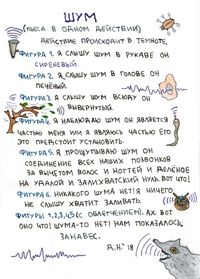 ШУМ
(пьеса в одном действии)
Действие происходит в темноте.
Фигура 1. Я слышу шум в рукаве он
сиреневый.
Фигура 2. Я слышу шум в голове он
печёный.
Фигура 3. Я слышу шум всюду он
вывернутый.
Фигура 4. Я наблюдаю шум он является
частью меня или я являюсь частью его
это предстоит установить.
Фигура 5. Я прощупываю шум он
соединение всех наших позвонков
за вычетом волос и ногтей и делёное
на удалой и залихватский нуль. Вот что!
Фигура 6. Никакого шума нет! Я ничего
не слышу хватит заливать.
Фигуры 1,2,3,4,5 (с облегчением). Ах вот
оно что! Шума-то нет! Нам показалось.
Занавес.
18